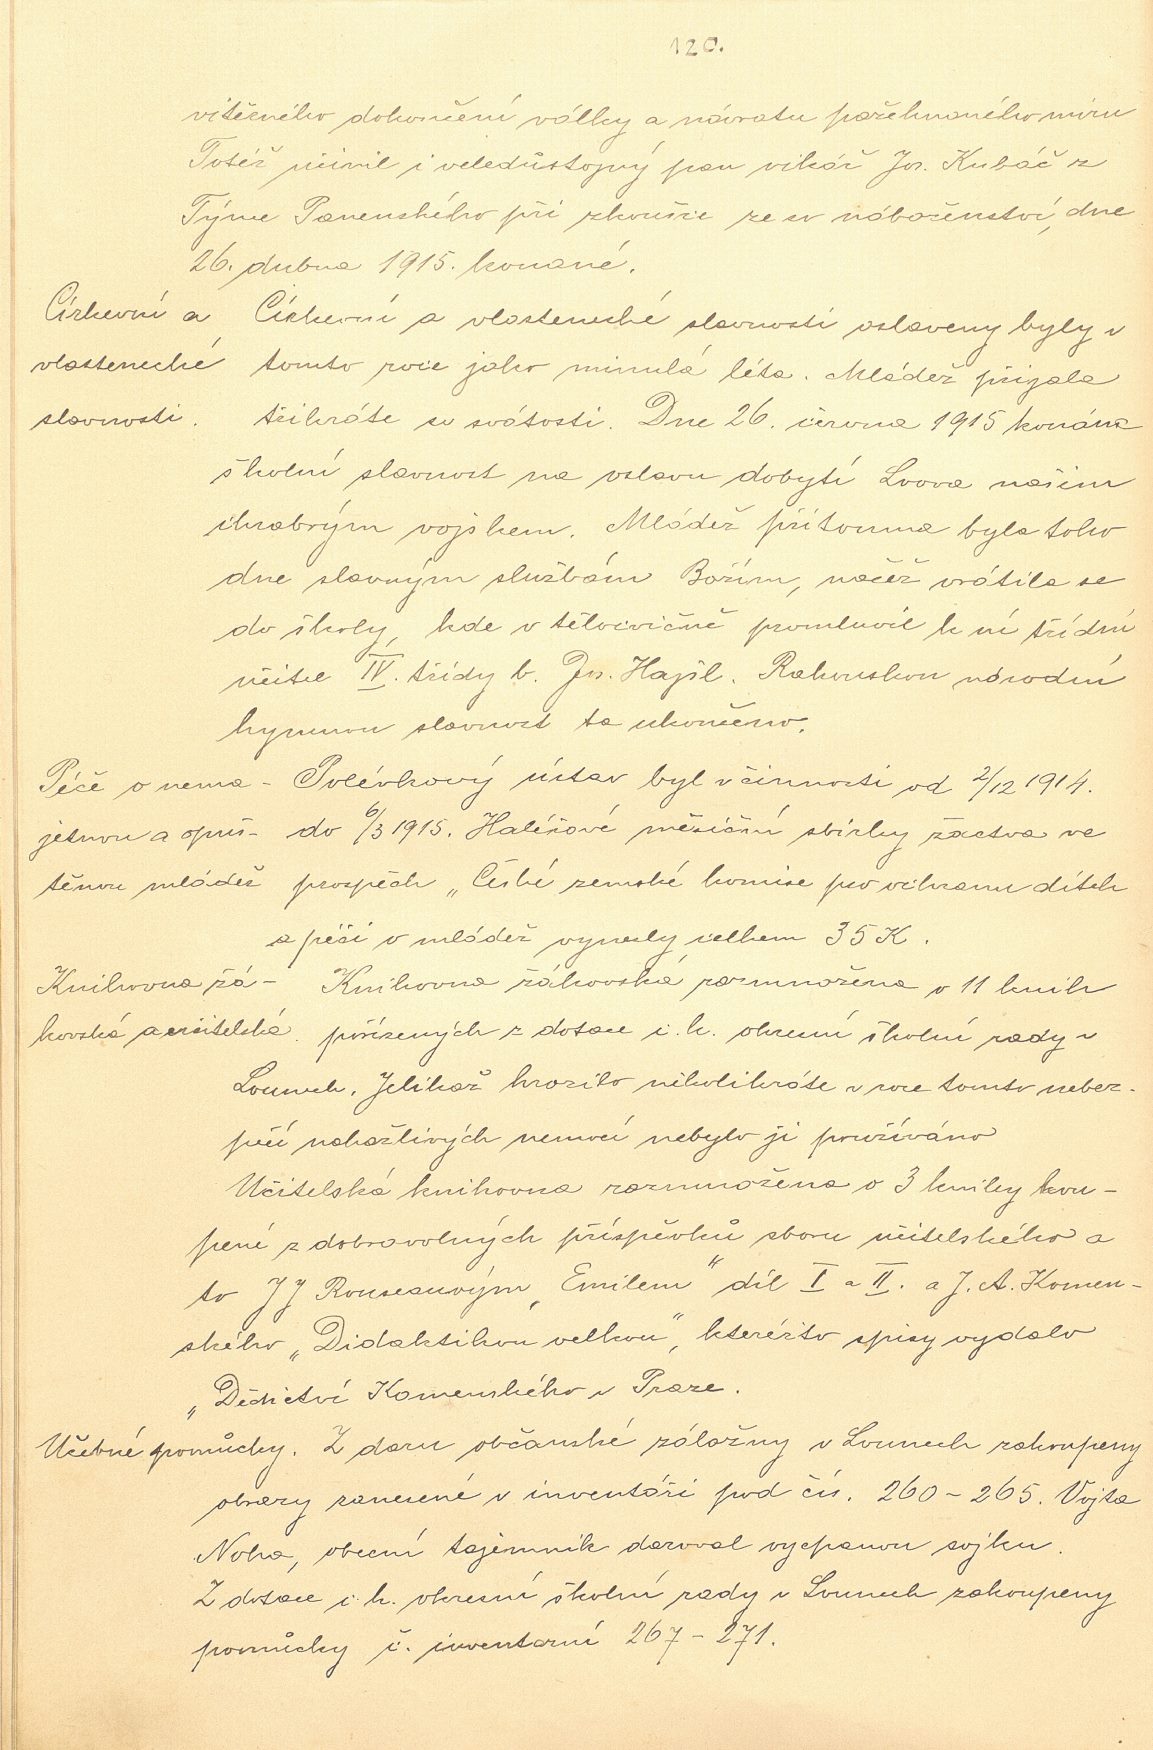 120.
vítězného dokončení války a návratu požehnaného míru
Totéž učinil i veledůstojný pan vikář Jos. Kubáč z
Týnce Panenského při zkoušce ze sv náboženství, dne
26. dubna 1915. konané.
Církevní a Církevní a vlastenecké slavnosti oslaveny byly v
vlastenecké tomto roce jako minulá léta. Mládež přijala
slavnosti. třikráte sv svátosti. Dne 26. června 1915 konána
školní slavnost na oslavu dobytí Lvova naším
chrabrým vojskem. Mládež přítomna byla toho
dne slavným službám Božím, načež vrátila se
do školy, kde v tělocvičně promluvil k ní třídní
učitel IV. třídy b. Jos. Hajšl. Rakouskou národní
hymnou slavnost ta ukončena.
Péče o nema- Polévkový ústav byl v činnosti od 2/12 1914.
jetnou a opuš- do 6/3 1915. Haléřové měsíční sbírky žactva ve
těnou mládež prospěch „České zemské komise pro ochranu dítek
a péči o mládež vynesly celkem 35 K.
Knihovna žá- Knihovna žákovská rozmnožena o 11 knih
kovská a učitelská. pořízených z dotace c. k. okresní školní rady v
Lounech. Jelikož hrozilo několikráte v roce tomto nebez-
pečí nakažlivých nemocí nebylo jí používáno
Učitelská knihovna rozmnožena o 3 knihy kou-
pené z dobrovolných příspěvků sboru učitelského a
to J J Rousseauovým „Emilem" díl I a II. a J. A. Komen-
ského „Didaktikou velkou", kteréžto spisy vydalo
„Dědictví Komenského v Praze.
Učebné pomůcky. Z daru občanské záložny v Lounech zakoupeny
obrazy zanesené v inventáři pod čís. 260-265. Vojta
Noha, obecní tajemník daroval vycpanou sojku.
Z dotace c. k. okresní školní rady v Lounech zakoupeny
pomůcky č. inventární 267-271.